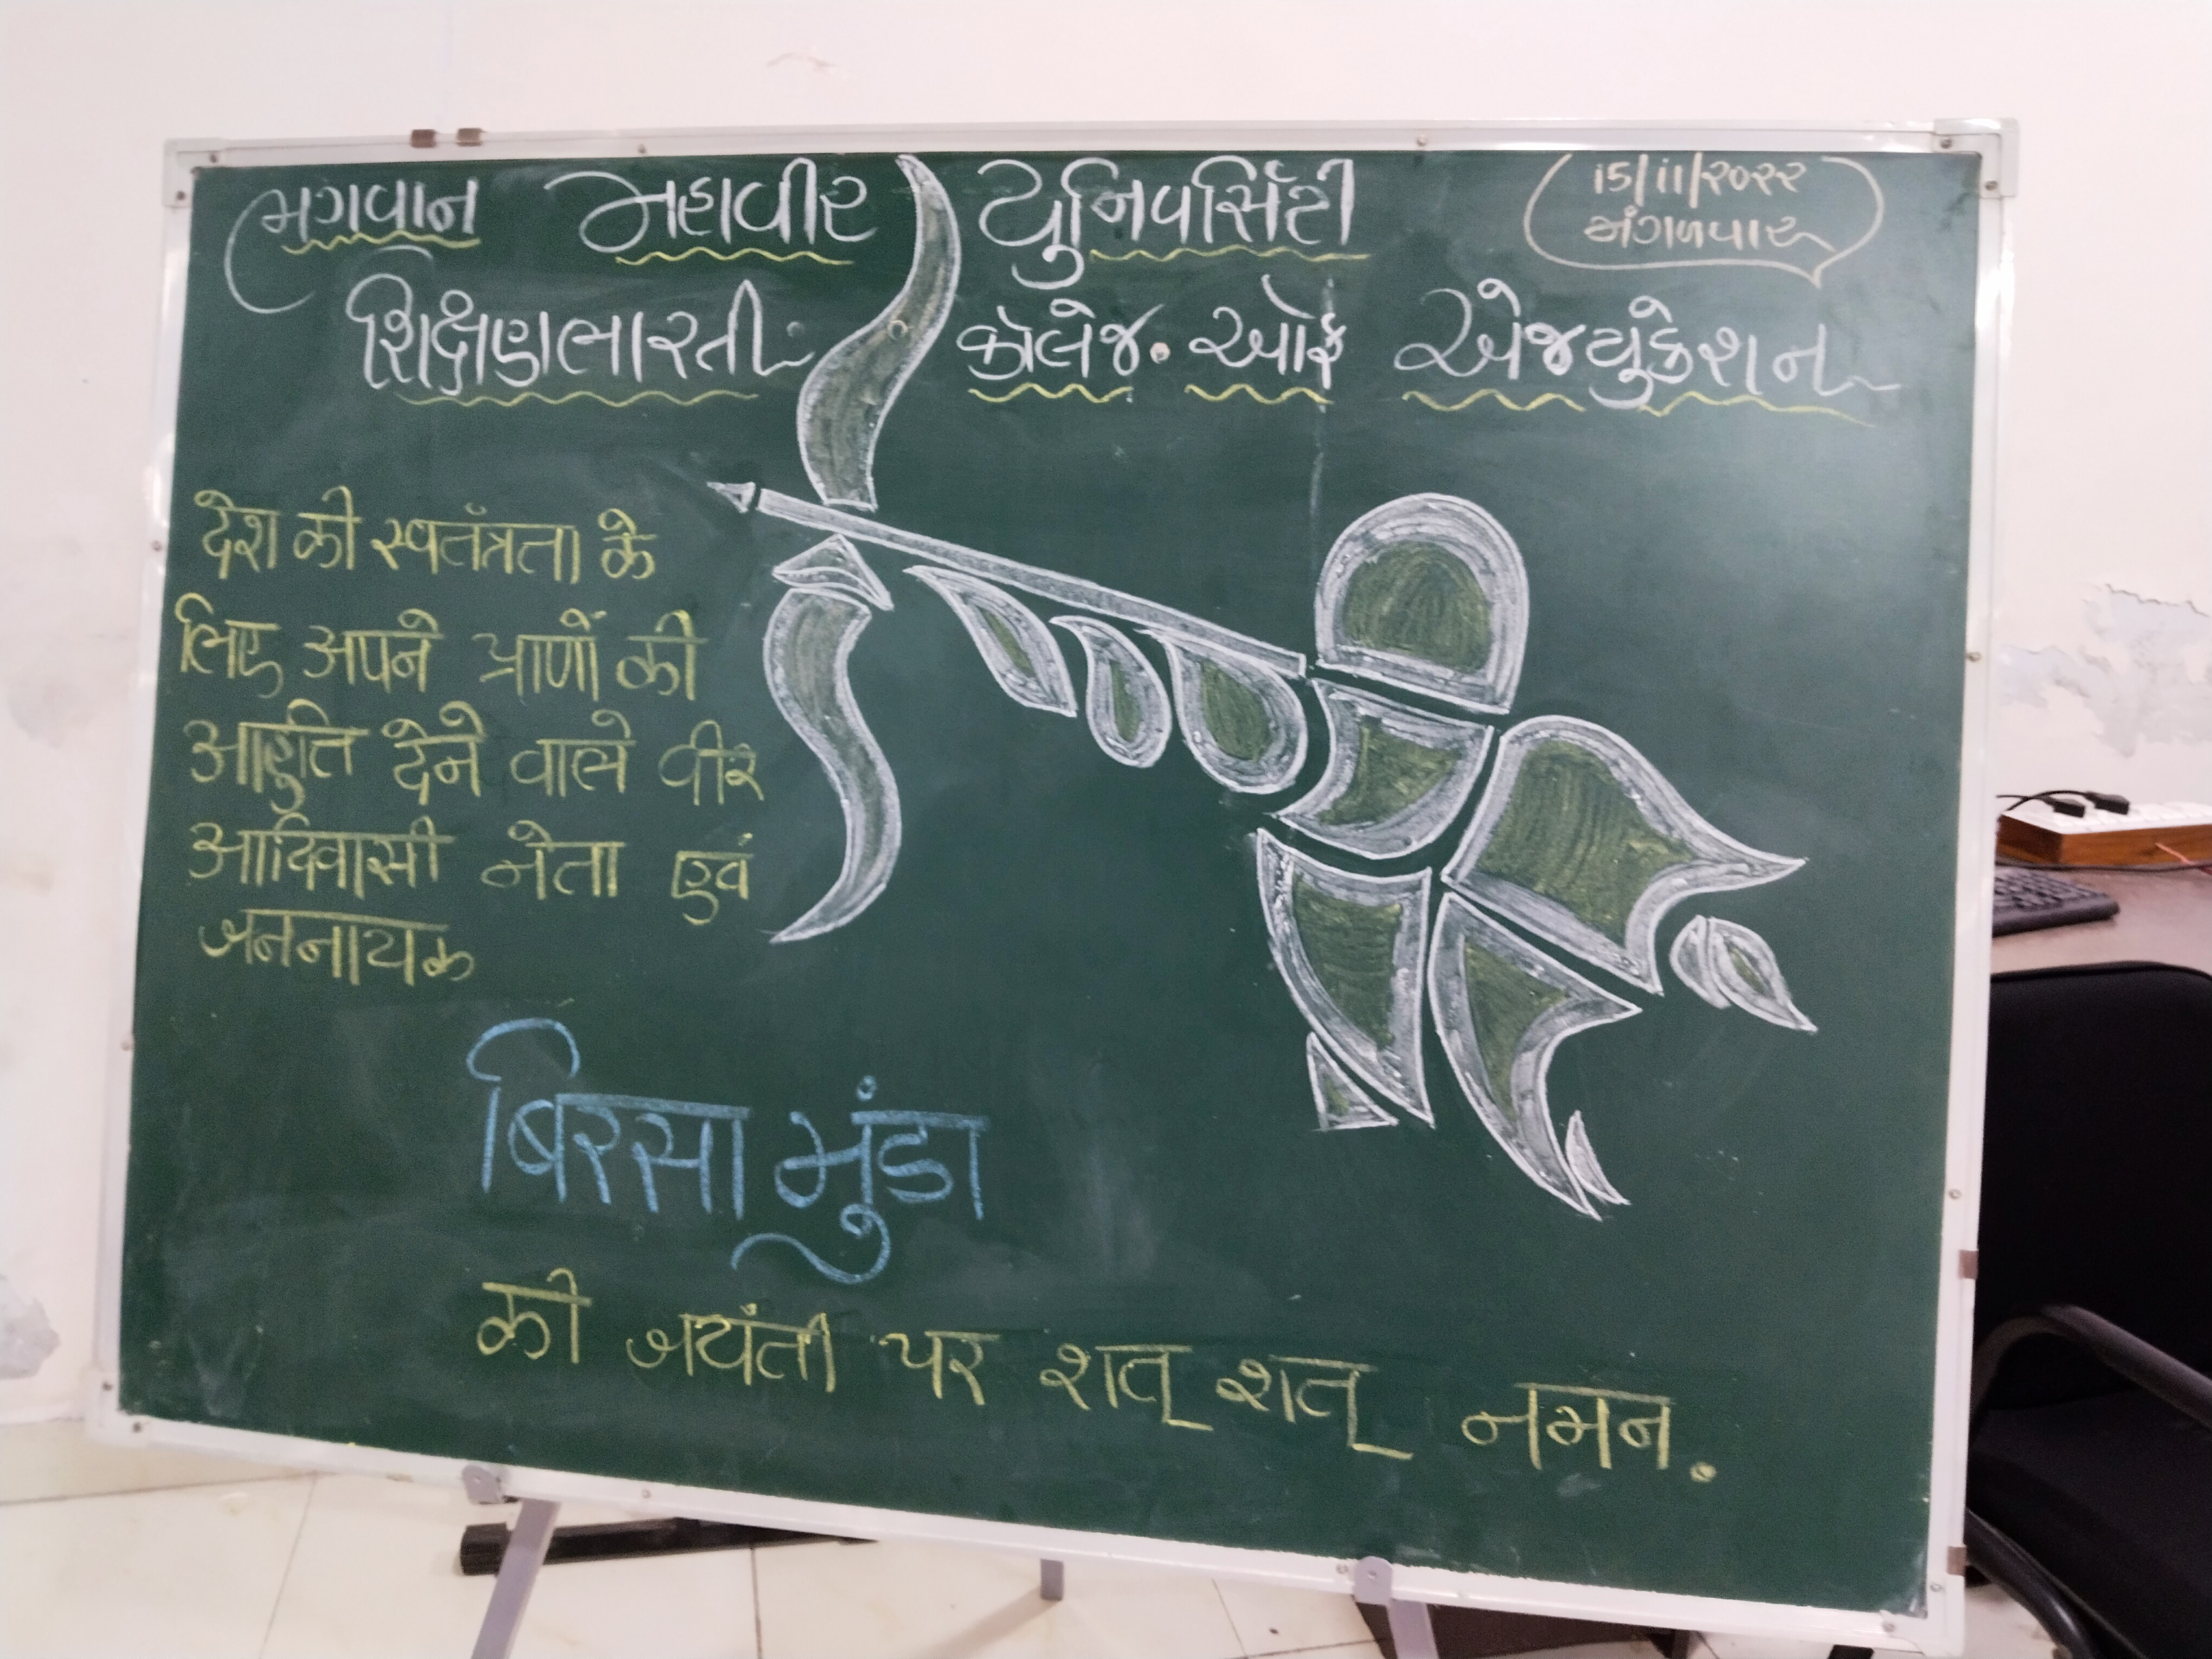 ભગવાન મહાવીર યુનિવર્સિટી
૧૫/૧૧/૨૦૨૨
મંગળવાર
શિક્ષણભારતી કૉલેજ ઑફ એજ્યુકેશન
देश की स्वतंत्रता के
लिए अपने प्राणों की
आहुति देने वाले वीर
आदिवासी नेता एवं
जननायक
बिरसा मुंडा
की जयंती पर शत् शत् नमन.